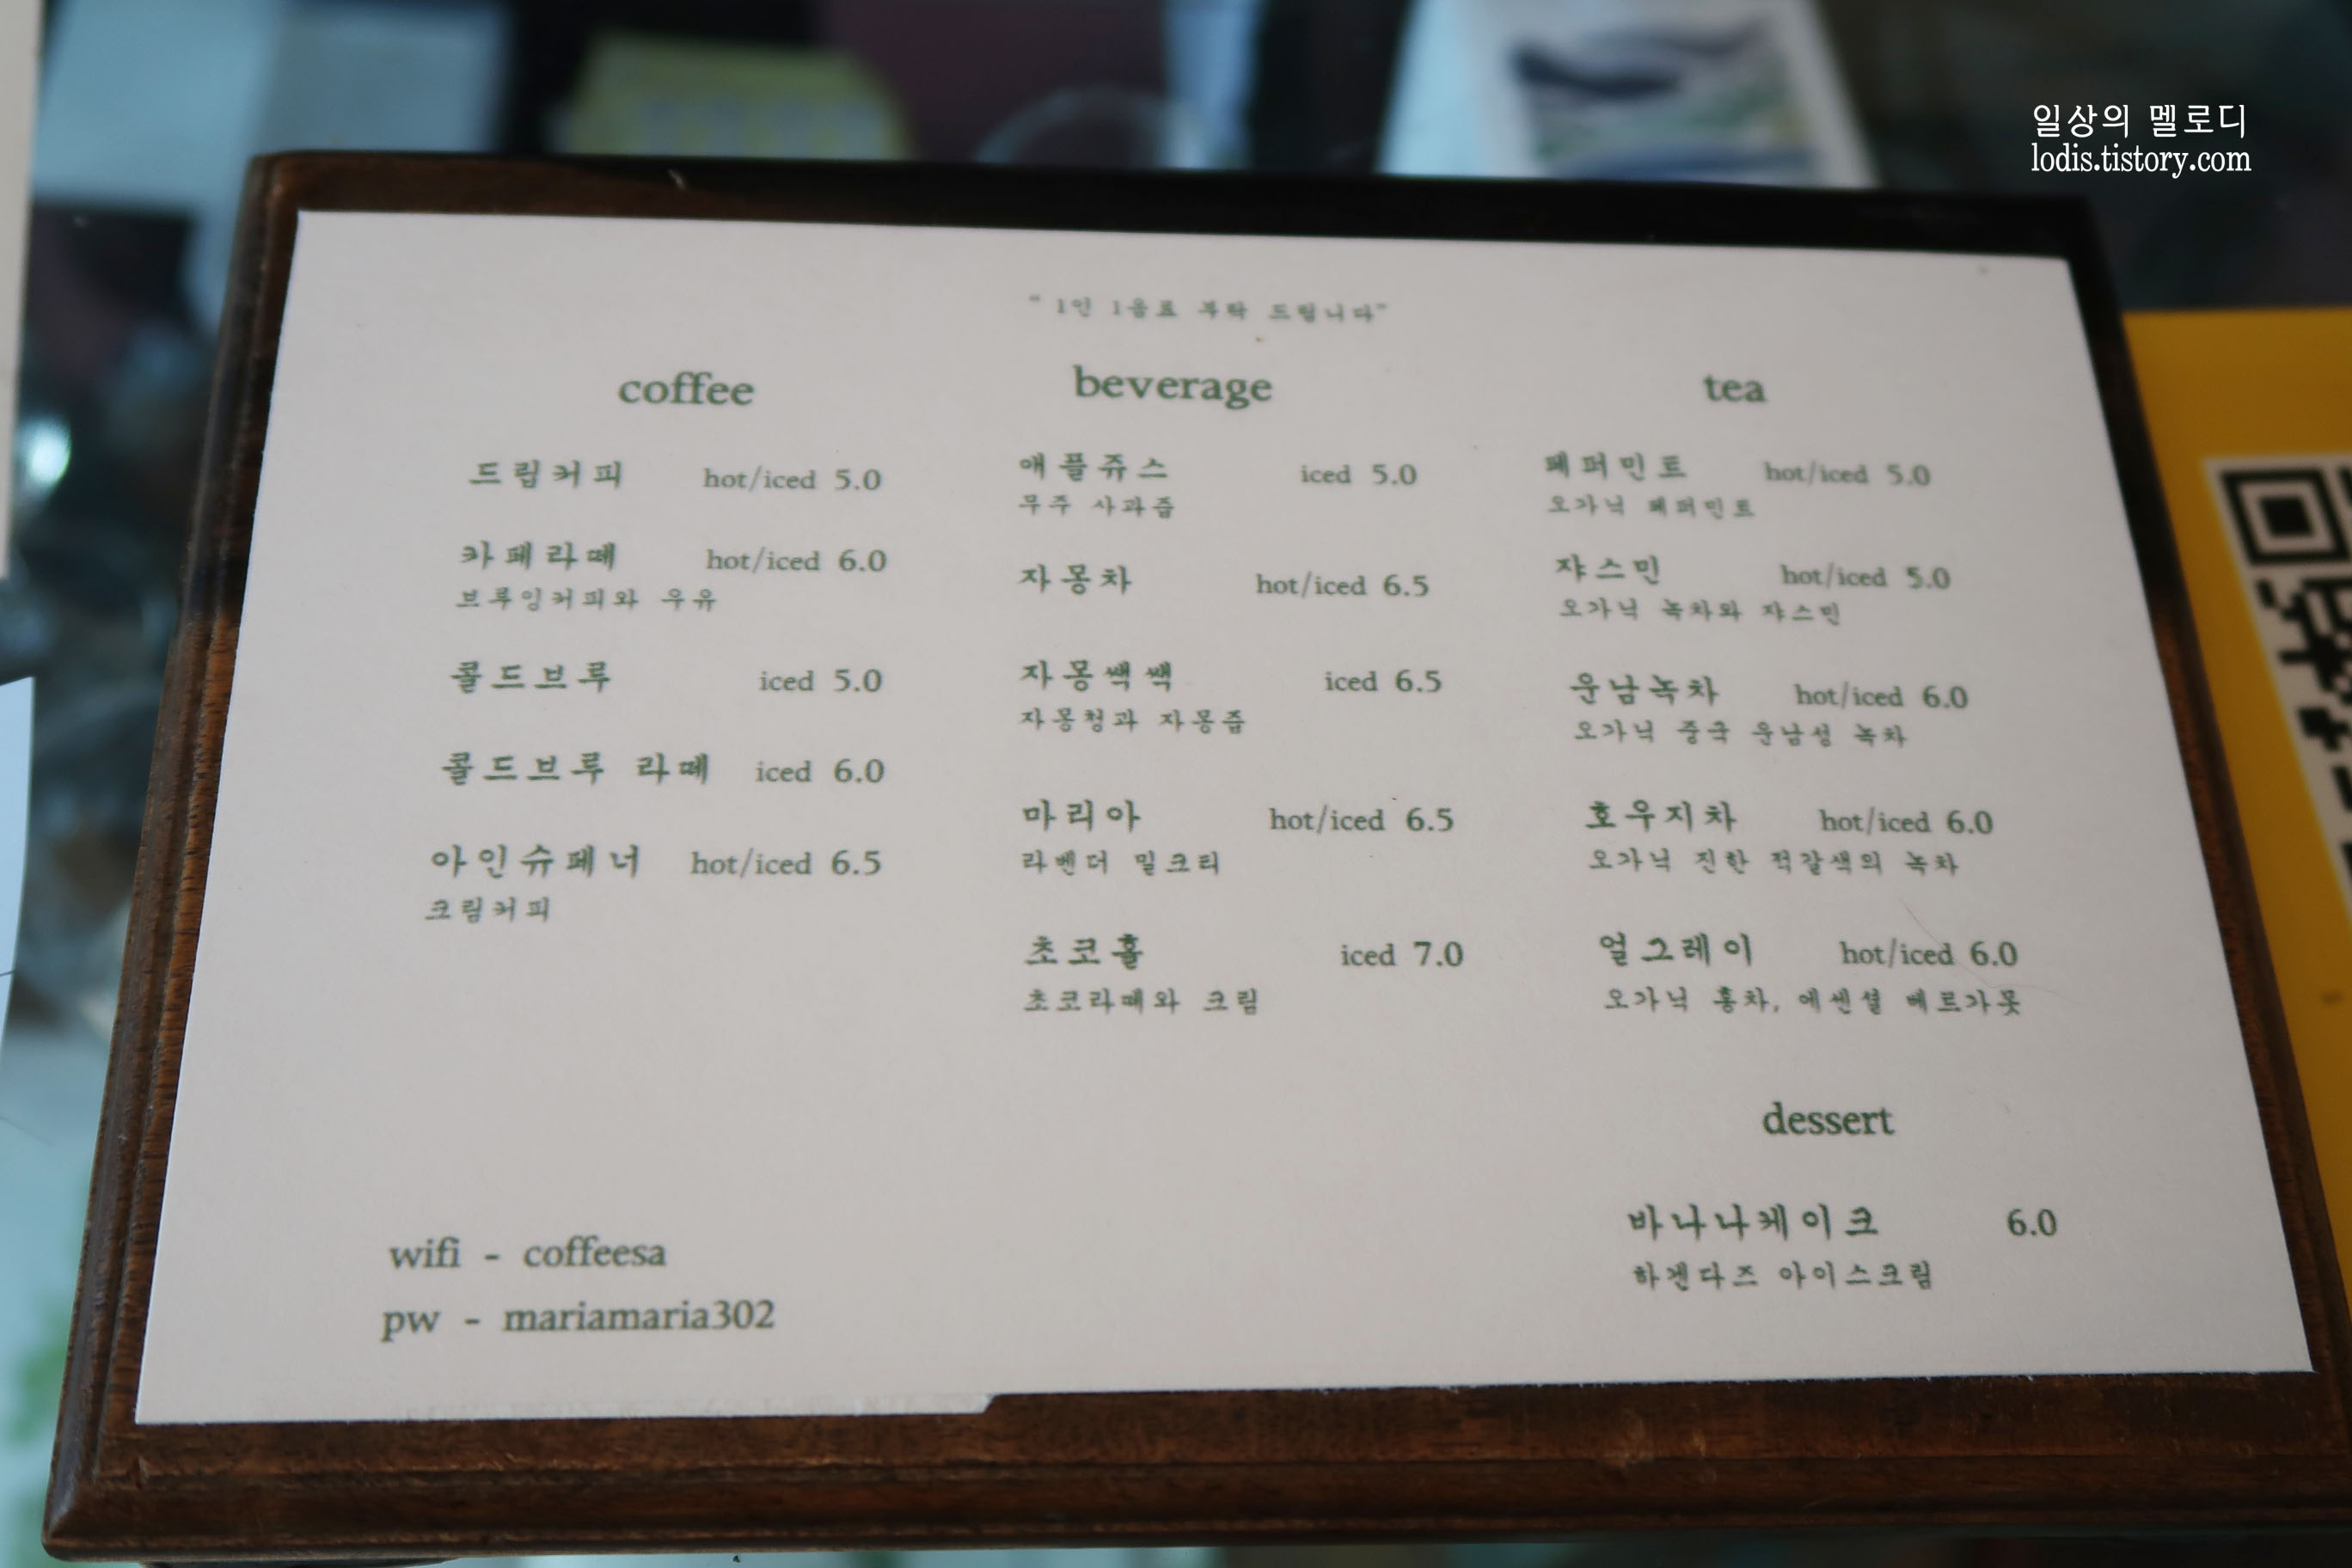 일상의 멜로디
lodis.tistory.com
“ 1인 1음료 부탁 드립니다”
coffee
드립커피 hot/iced 5.0
카페라떼 hot/iced 6.0
브루잉커피와 우유
콜드브루 iced 5.0
콜드브루 라떼 iced 6.0
아인슈페너 hot/iced 6.5
크림커피
beverage
애플쥬스 iced 5.0
무주 사과즙
자몽차 hot/iced 6.5
자몽쌕쌕 iced 6.5
자몽청과 자몽즙
마리아 hot/iced 6.5
라벤더 밀크티
초코홀 iced 7.0
초코라떼와 크림
tea
페퍼민트 hot/iced 5.0
오가닉 페퍼민트
쟈스민 hot/iced 5.0
오가닉 녹차와 쟈스민
운남녹차 hot/iced 6.0
오가닉 중국 운남성 녹차
호우지차 hot/iced 6.0
오가닉 진한 적갈색의 녹차
얼그레이 hot/iced 6.0
오가닉 홍차, 에센셜 베르가못
dessert
바나나케이크 6.0
하겐다즈 아이스크림
wifi - coffeesa
pw - mariamaria302